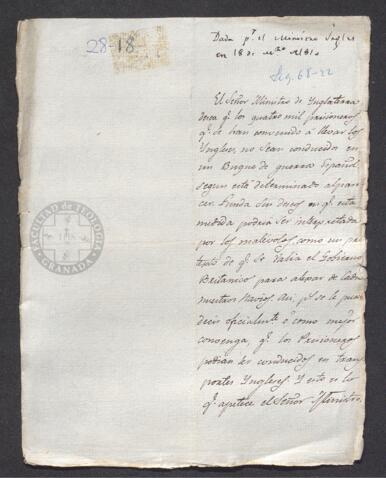 28-18
Dada pr. el Ministro Ingles
en 18 de 1810
Leg. 68-22
El Señor Ministro de Ynglaterra
desea qe. los quatro mil prisioneros
qe. se han convenido à llevar los
Yngleses no sean conducidos en
un Buque de guerra Español
segun està determinado al parecer
funda sus deseos en qe. esta
medida podria ser interpretada
por los malevolos como un pre-
texto de qe. se valia el Gobierno
Britanico para alexar de Cadiz
nuestros Navios. Asi pr. se le puede
decir oficialmte. ò como mejor
convenga, qe. los Prisioneros
podrian ser conducidos en trans-
portes Yngleses. Y esto es lo
qe. apetece el Señor Ministro.
FACULTAD de TEOLOGIA
GRANADA